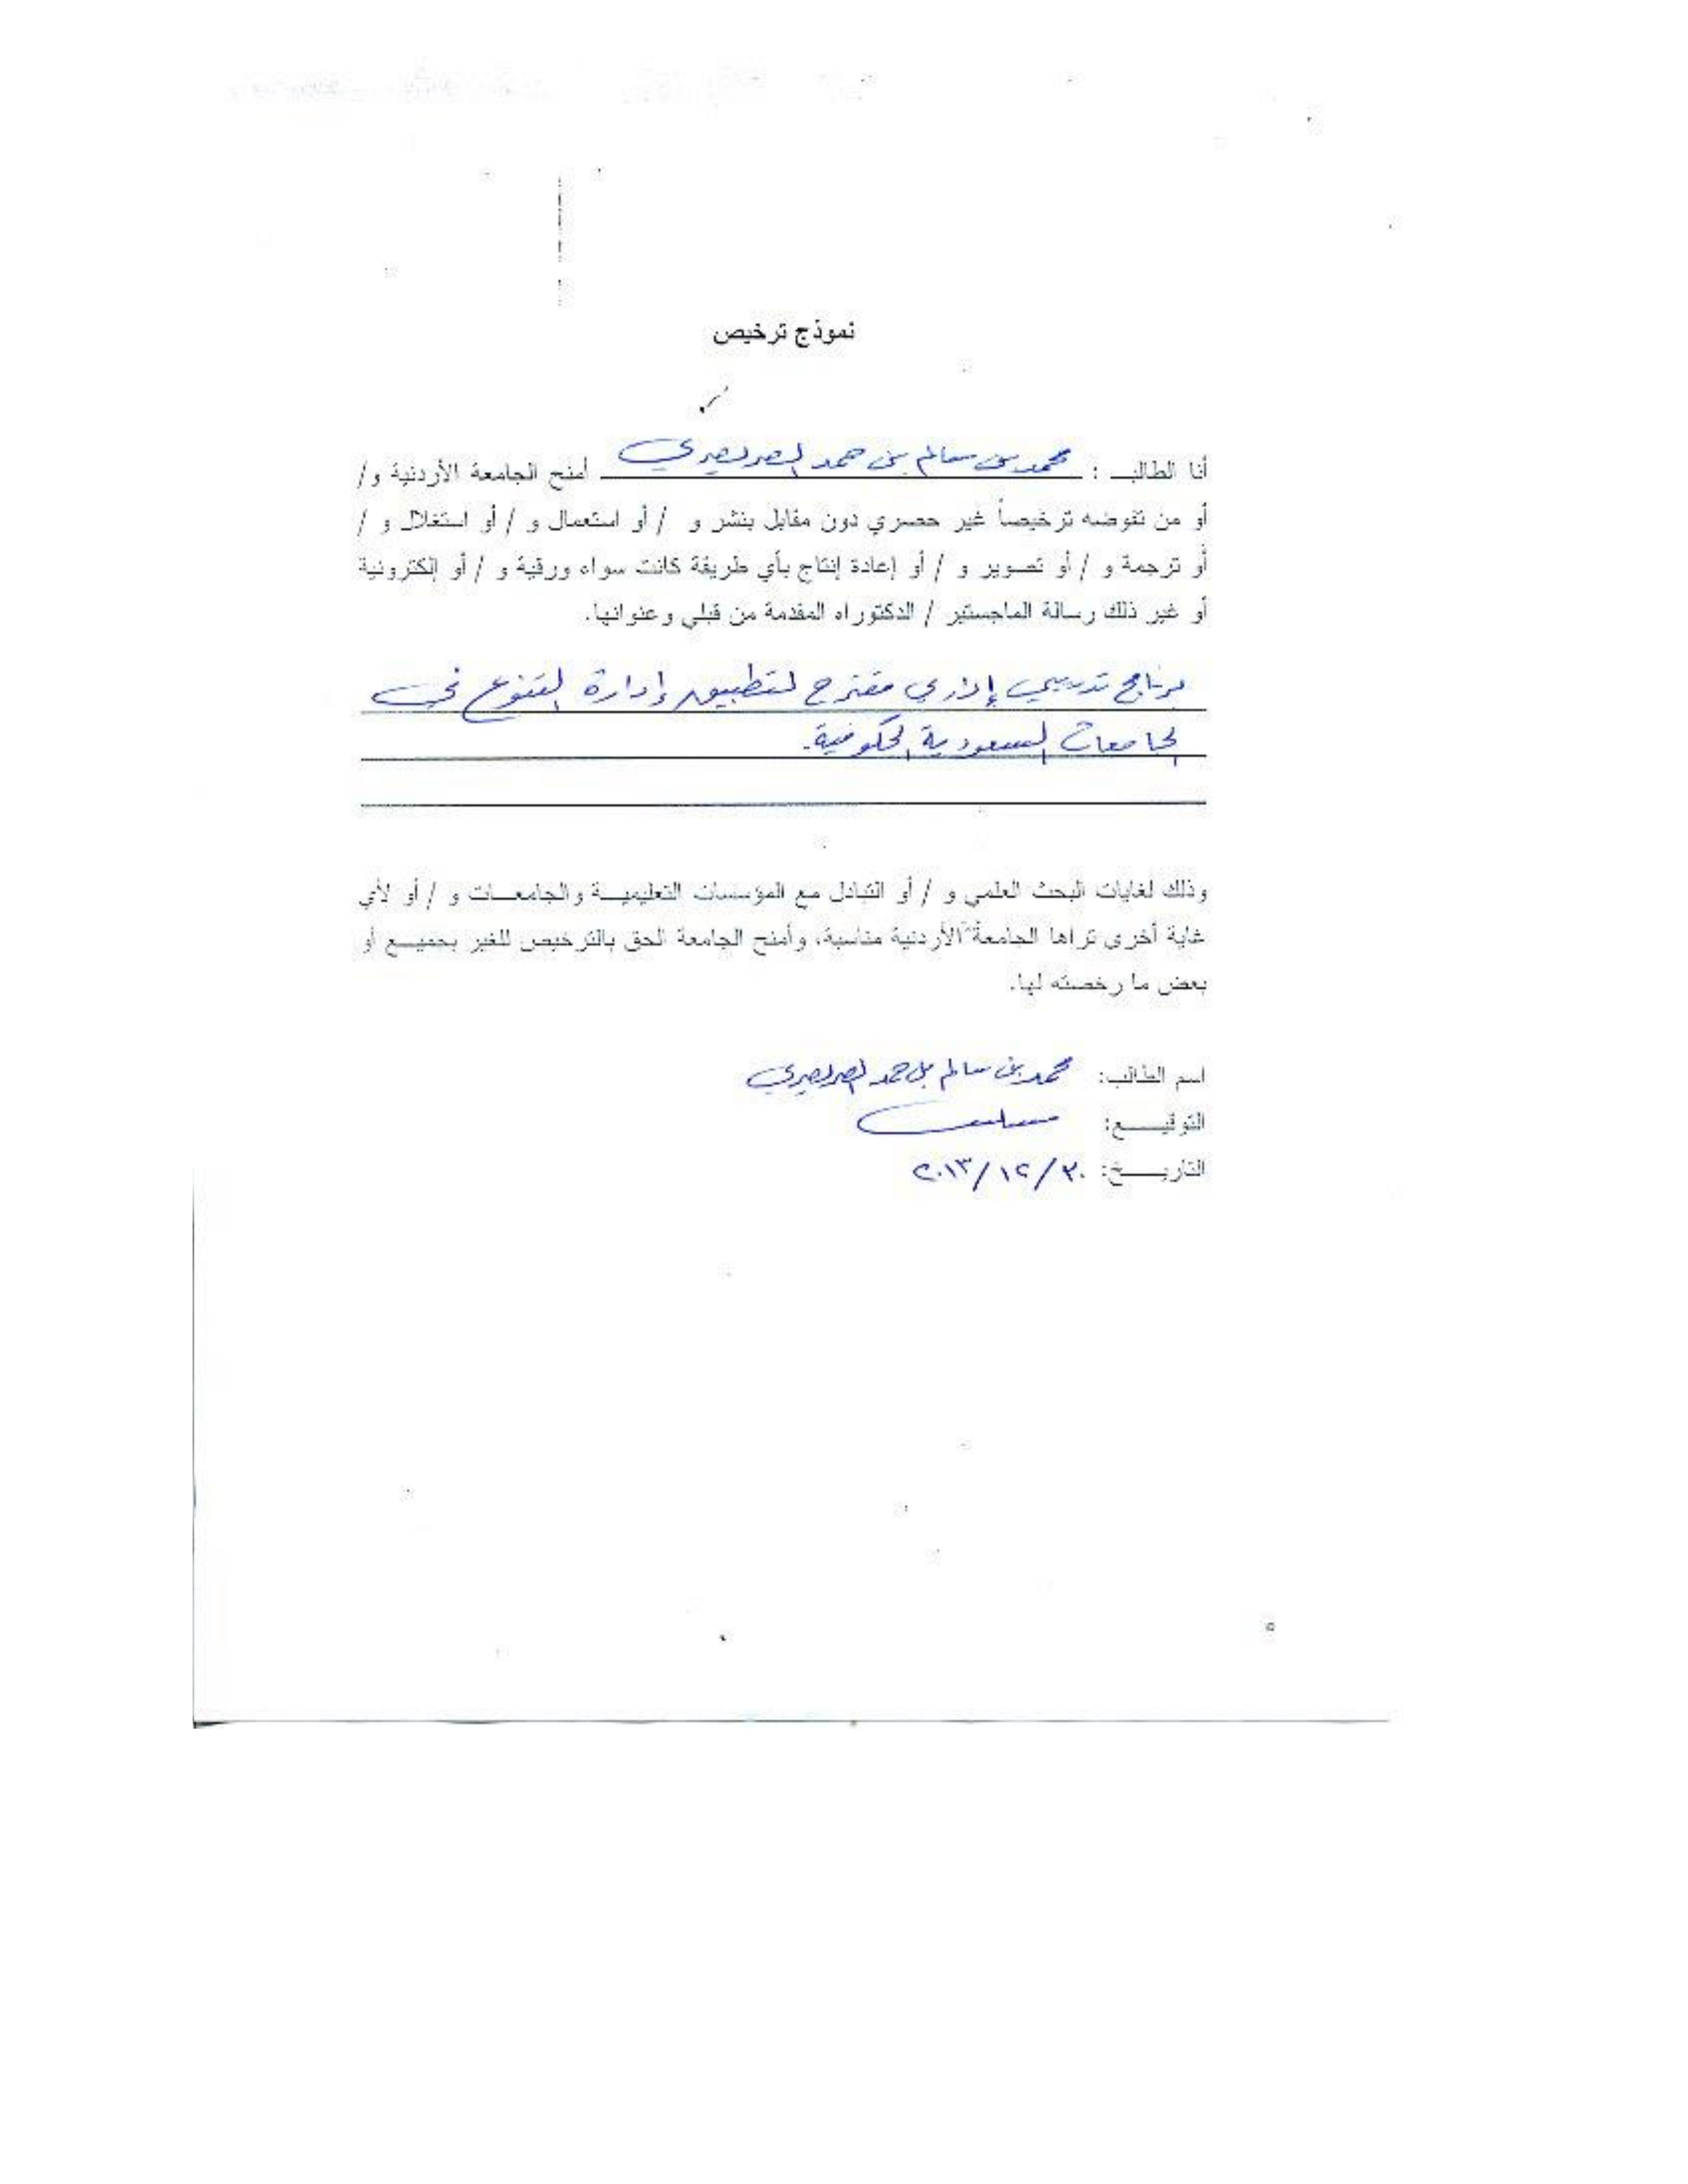 نموذج ترخيص
أنا الطالب : محمد بن سالم بن حمد أمنح الجامعة الأردنية و/
أو من تفوضه ترخيصاً غير حصري دون مقابل بنشر و / أو استعمال و / أو استغلال و /
أو ترجمة و / أو تصوير و / أو إعادة إنتاج بأي طريقة كانت سواء ورقية و / أو إلكترونية
أو غير ذلك رسالة الماجستير / الدكتوراه المقدمة من قبلي وعنوانها.
برنامج تدريبي إداري مقترح لتطبيق إدارة التنوع في
الجامعات السعودية الحكومية.
وذلك لغايات البحث العلمي و / أو التبادل مع المؤسسات التعليمية والجامعات و / أو لأي
غاية أخرى تراها الجامعة الأردنية مناسبة، وأمنح الجامعة الحق بالترخيص للغير بجميع أو
بعض ما رخصته لها.
اسم الطالب: محمد بن سالم بن حمد
التوقيع:
التاريخ: ٣٠/١٢/٢٠١٣